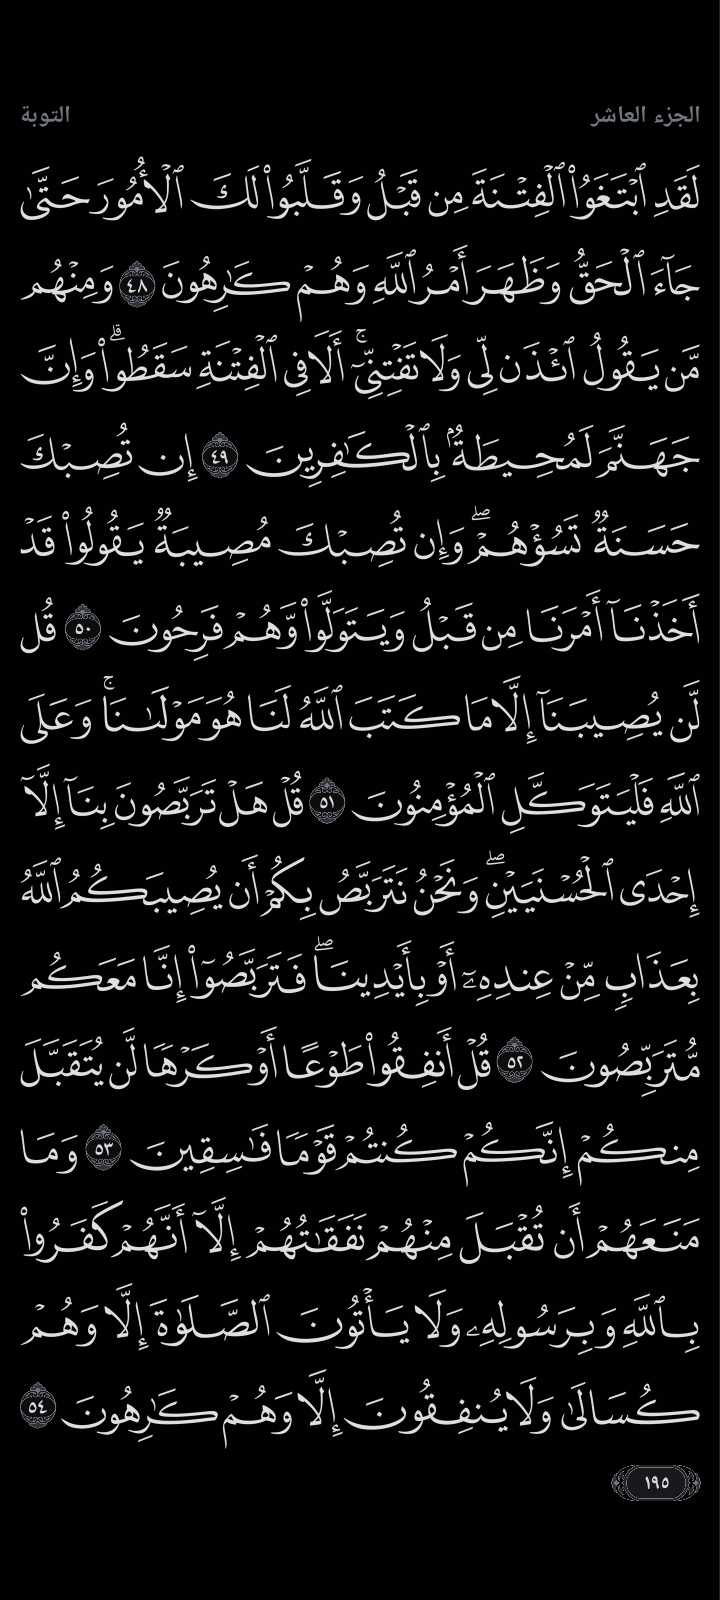 الجزء العاشر
التوبة
لَقَدِ ٱبۡتَغَوُاْ ٱلۡفِتۡنَةَ مِن قَبۡلُ وَقَلَّبُواْ لَكَ ٱلۡأُمُورَ حَتَّىٰ
جَآءَ ٱلۡحَقُّ وَظَهَرَ أَمۡرُ ٱللَّهِ وَهُمۡ كَٰرِهُونَ ٤٨ وَمِنۡهُم
مَّن يَقُولُ ٱئۡذَن لِّي وَلَا تَفۡتِنِّيٓۚ أَلَا فِي ٱلۡفِتۡنَةِ سَقَطُواْۗ وَإِنَّ
جَهَنَّمَ لَمُحِيطَةُۢ بِٱلۡكَٰفِرِينَ ٤٩ إِن تُصِبۡكَ
حَسَنَةٞ تَسُؤۡهُمۡۖ وَإِن تُصِبۡكَ مُصِيبَةٞ يَقُولُواْ قَدۡ
أَخَذۡنَآ أَمۡرَنَا مِن قَبۡلُ وَيَتَوَلَّواْ وَّهُمۡ فَرِحُونَ ٥٠ قُل
لَّن يُصِيبَنَآ إِلَّا مَا كَتَبَ ٱللَّهُ لَنَا هُوَ مَوۡلَىٰنَاۚ وَعَلَى
ٱللَّهِ فَلۡيَتَوَكَّلِ ٱلۡمُؤۡمِنُونَ ٥١ قُلۡ هَلۡ تَرَبَّصُونَ بِنَآ إِلَّآ
إِحۡدَى ٱلۡحُسۡنَيَيۡنِۖ وَنَحۡنُ نَتَرَبَّصُ بِكُمۡ أَن يُصِيبَكُمُ ٱللَّهُ
بِعَذَابٖ مِّنۡ عِندِهِۦٓ أَوۡ بِأَيۡدِينَاۖ فَتَرَبَّصُوٓاْ إِنَّا مَعَكُم
مُّتَرَبِّصُونَ ٥٢ قُلۡ أَنفِقُواْ طَوۡعًا أَوۡ كَرۡهٗا لَّن يُتَقَبَّلَ
مِنكُمۡ إِنَّكُمۡ كُنتُمۡ قَوۡمٗا فَٰسِقِينَ ٥٣ وَمَا
مَنَعَهُمۡ أَن تُقۡبَلَ مِنۡهُمۡ نَفَقَٰتُهُمۡ إِلَّآ أَنَّهُمۡ كَفَرُواْ
بِٱللَّهِ وَبِرَسُولِهِۦ وَلَا يَأۡتُونَ ٱلصَّلَوٰةَ إِلَّا وَهُمۡ
كُسَالَىٰ وَلَا يُنفِقُونَ إِلَّا وَهُمۡ كَٰرِهُونَ ٥٤
١٩٥